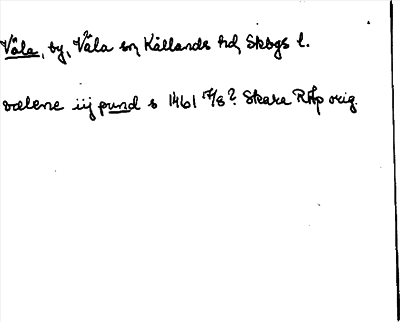 Våla, by, Våla sn, Kållands hd, Skbgs l.
valene iij pund s 1461 17/8? Skara RAp orig.